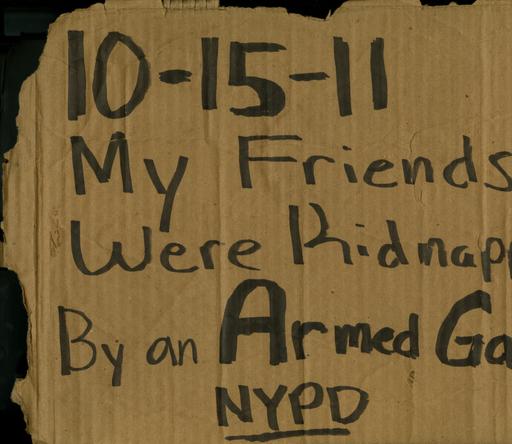 10-15-11
My Friends
Were Kidnapp
By an Armed Ga
NYPD